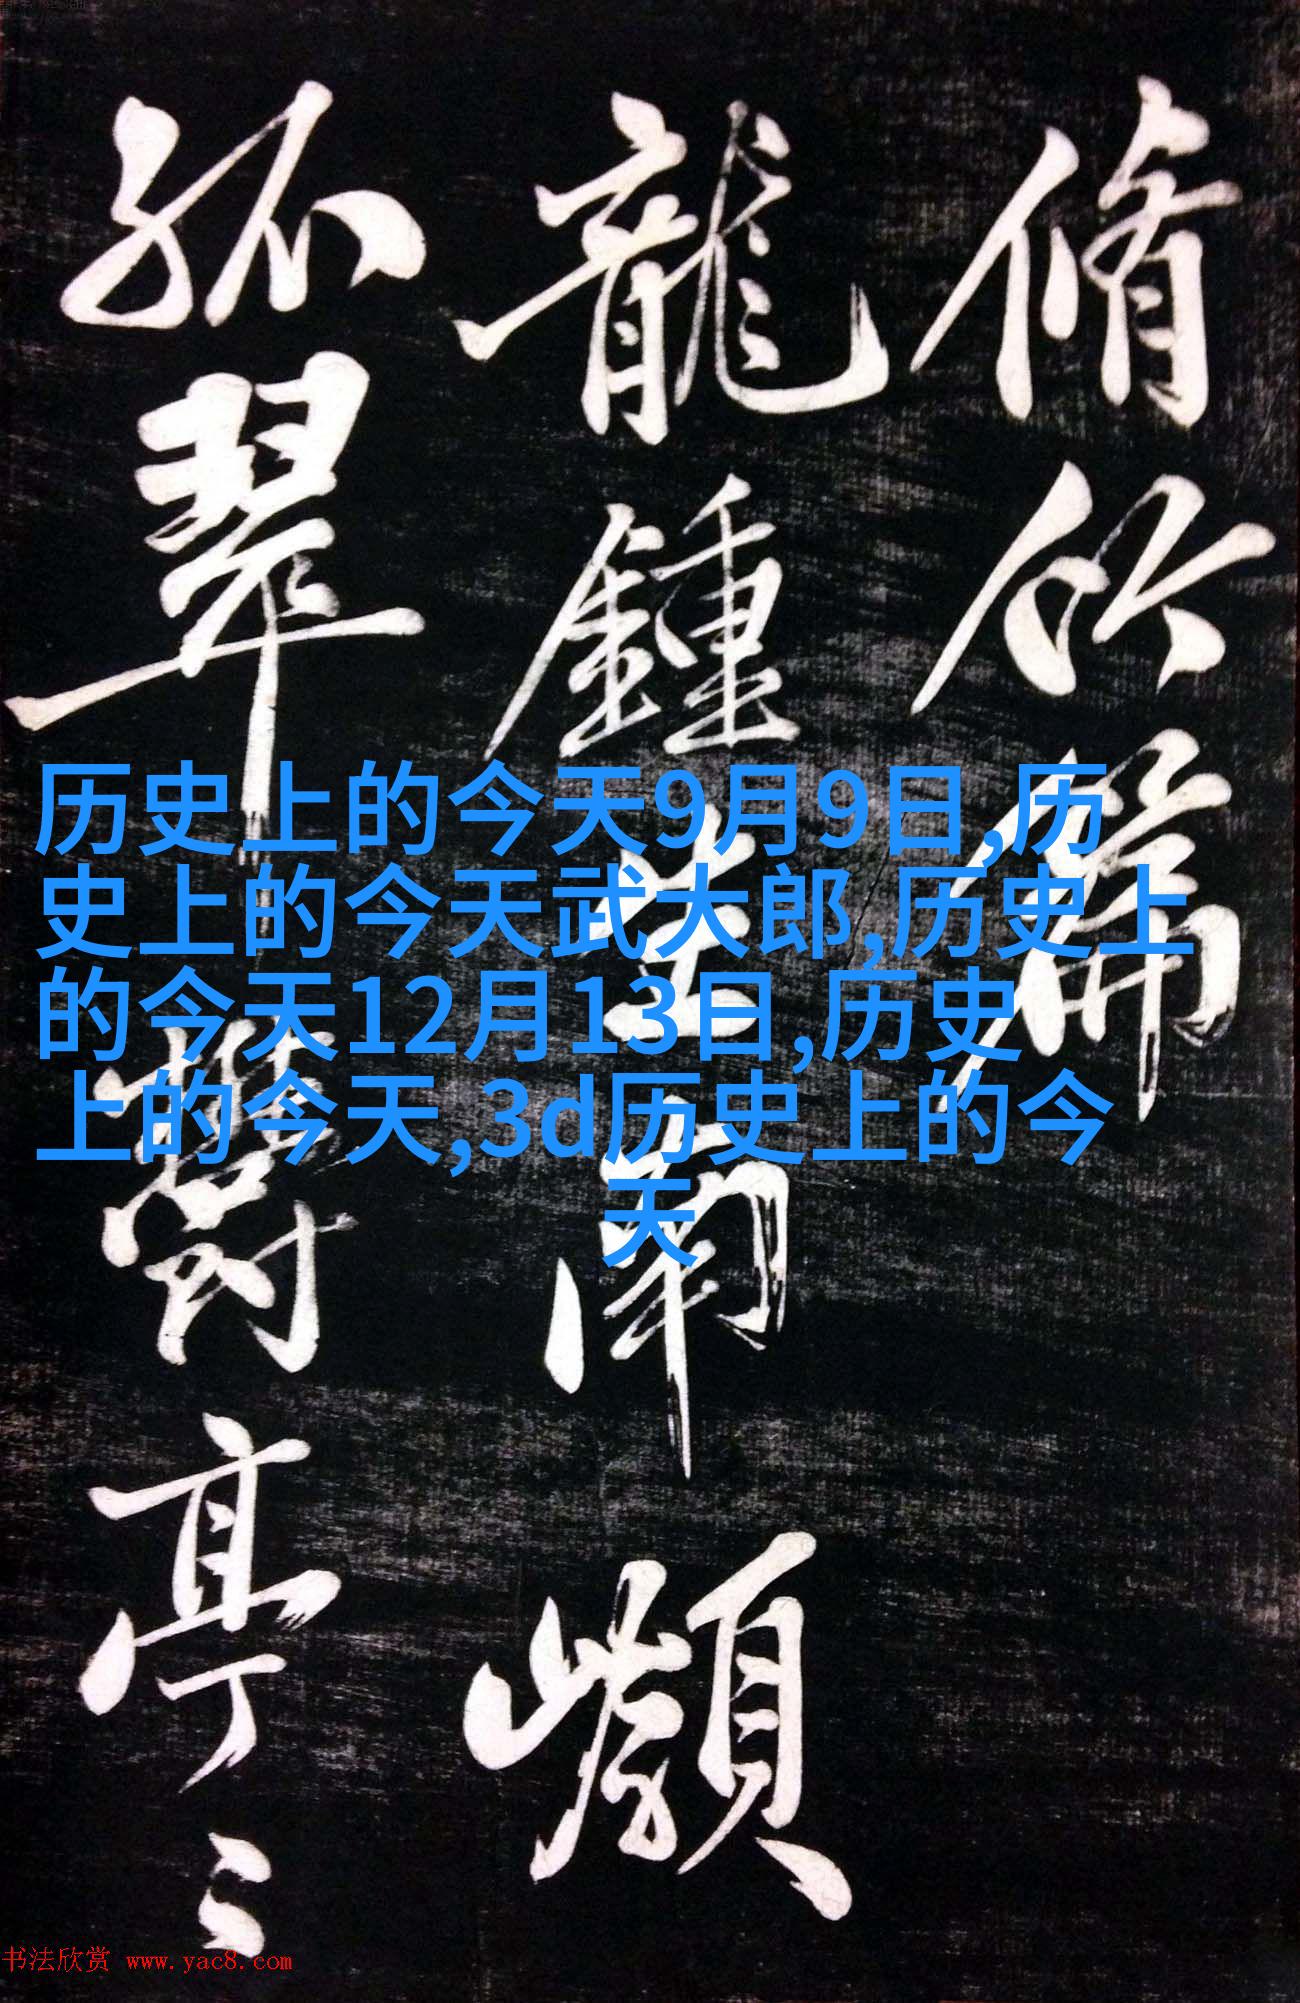 脩竹篇
龍鍾生南
孤翠鬱亭〻
历史上的今天9月9日,历
史上的今天武大郎,历史上
的今天12月13日,历史
上的今天,3d历史上的今
天
书法欣赏 www.yac8.com